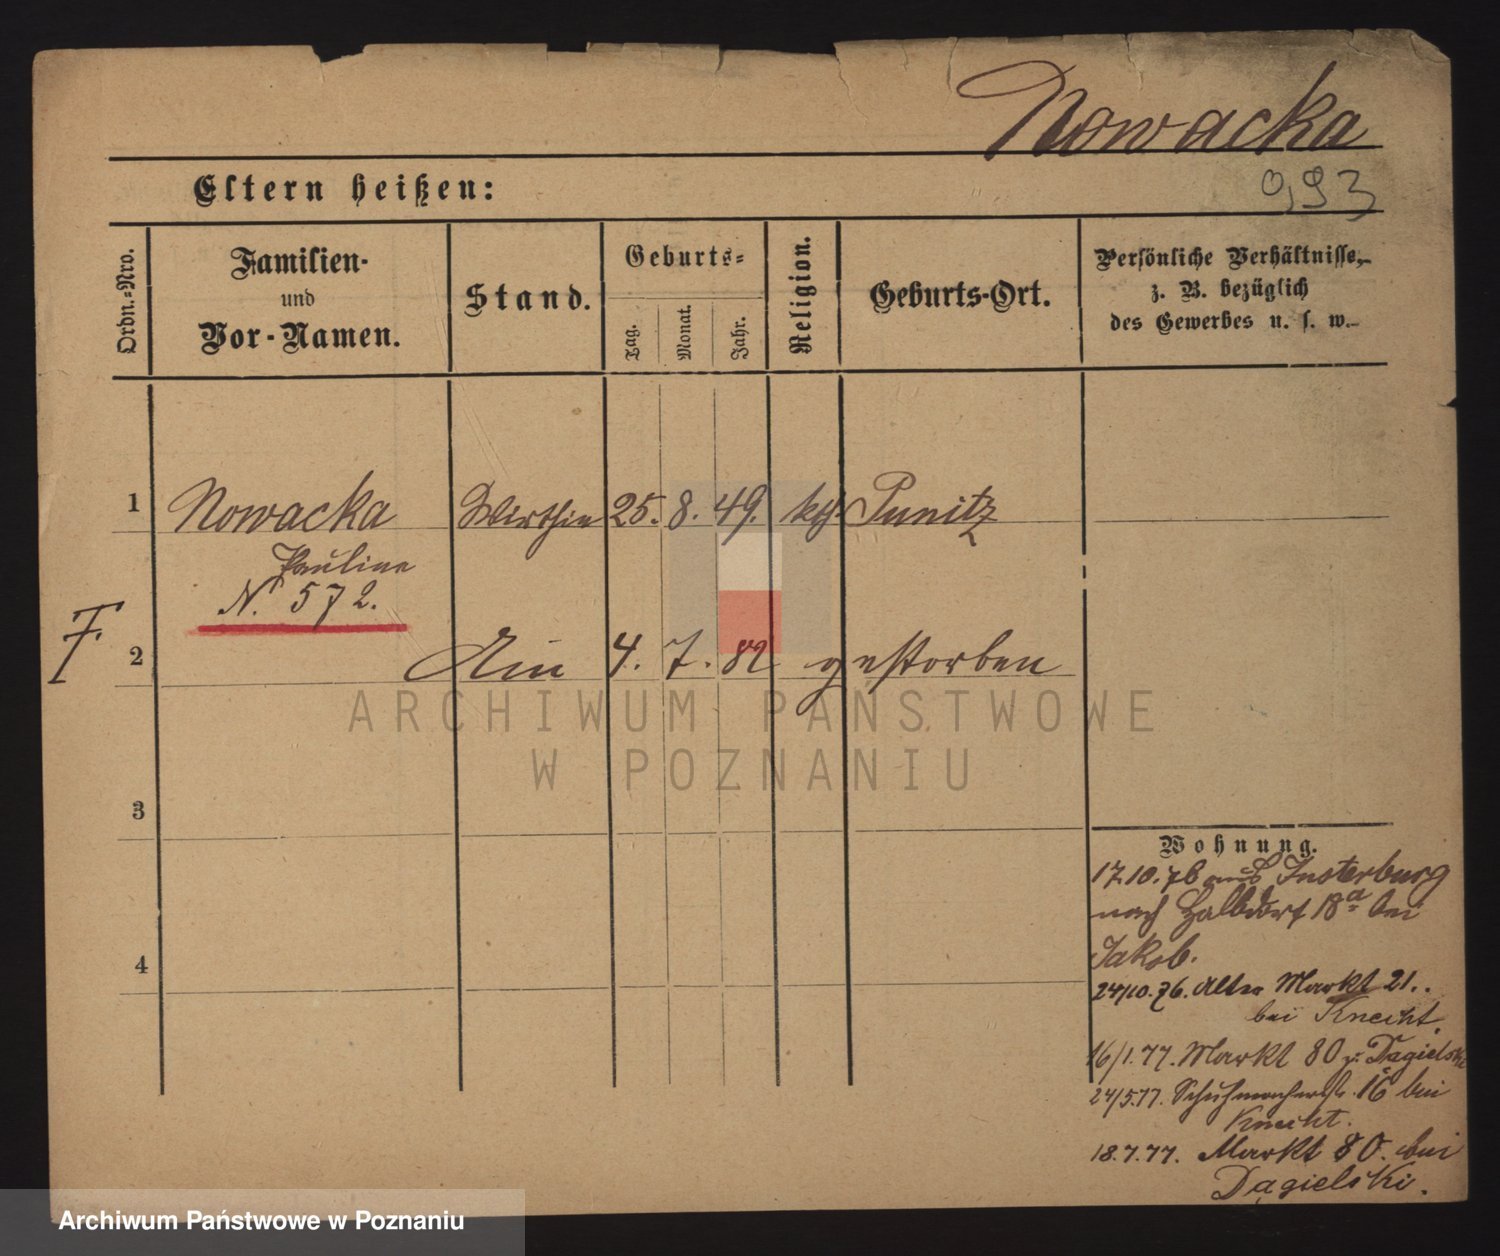 Nowacka
993
Eltern heißen:
Ordn.-Nro.
Familien-
und
Vor-Namen.
Stand.
Geburts-
Tag.
Monat.
Jahr.
Religion.
Geburts-Ort.
Persönliche Verhältnisse,
z. B. bezüglich
des Gewerbes u. s. w.
1 Nowacka Wirthin 25. 8. 49. kth Punitz
Pauline
N. 572.
F.
2 Am 4. 7. 82 gestorben
ARCHIWUM PAŃSTWOWE
W POZNANIU
3
4
Wohnung.
17.10.76 aus Insterburg
nach Halbdorf 18a bei
Jakob.
24/10.76. Alter Markt 21.
bei Knecht.
16/1.77. Markt 80 Dagielski
24/5.77. Schuhmacherstr. 16 bei
Knecht.
18.7.77. Markt 80. bei
Dagielski.
Archiwum Państwowe w Poznaniu